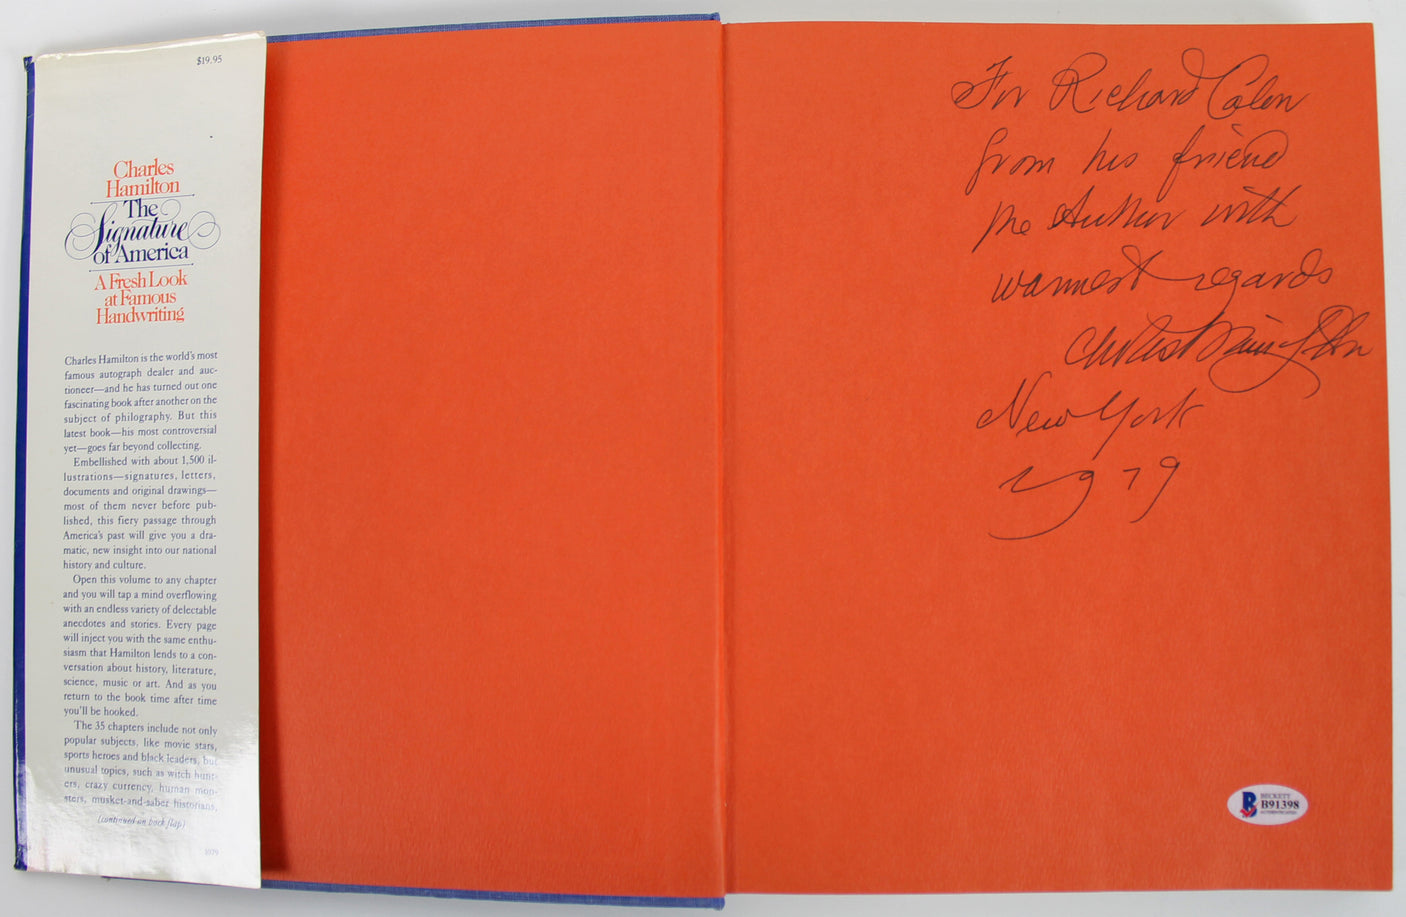 $19.95
Charles
Hamilton
The
Signature
of America
A Fresh Look
at Famous
Handwriting
Charles Hamilton is the world's most
famous autograph dealer and auc-
tioneer—and he has turned out one
fascinating book after another on the
subject of philography. But this
latest book—his most controversial
yet—goes far beyond collecting.
Embellished with about 1,500 il-
lustrations—signatures, letters,
documents and original drawings—
most of them never before pub-
lished, this fiery passage through
America's past will give you a dra-
matic, new insight into our national
history and culture.
Open this volume to any chapter
and you will tap a mind overflowing
with an endless variety of delectable
anecdotes and stories. Every page
will inject you with the same enthu-
siasm that Hamilton lends to a con-
versation about history, literature,
science, music or art. And as you
return to the book time after time
you'll be hooked.
The 35 chapters include not only
popular subjects, like movie stars,
sports heroes and black leaders, but
unusual topics, such as witch hunt-
ers, crazy currency, human mon-
sters, musket-and-saber historians,
(continued on back flap)
1079
For Richard Colen
from his friend
the Author with
warmest regards
Charles Hamilton
New York
1979
BECKETT
B91398
AUTHENTICATED